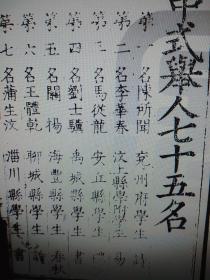 中式舉人七十五名
第一名陳所聞 兗州府學生 詩
第二名李華春 汶上縣學附生 易
第三名馬從龍 安丘縣學生
第四名劉士驥 禹城縣學生 書
第五名關揚 海豐縣學生 春秋
第六名王體乾 聊城縣學生
第七名蒲生汶 淄川縣學生 書